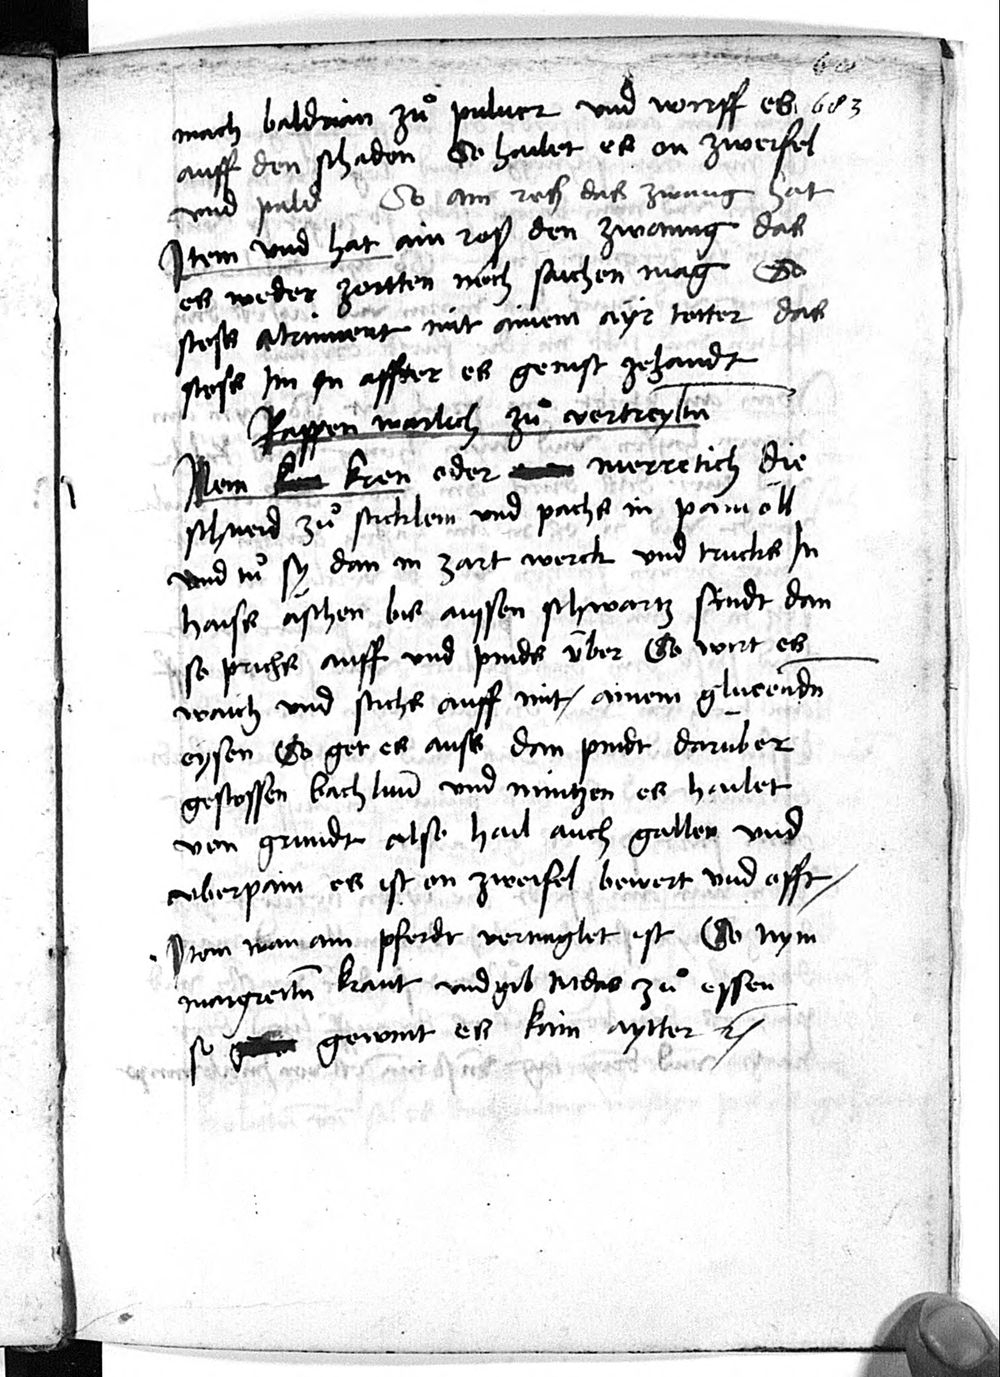 683
mach baldrian zů puluer vnd wirff es
auff den schaden So hailet es on zweifel
vnd pald So ain roß das zwang hat
Item vnd hat ain roß den zwanng das
es weder zortten noch sachen mag So
stoss atriment mit ainem ayr totter das
stoss Im In affter es genist zehandt
Rappen warlich zů vertreyben
Nem kren oder merretich die
schneid zů stücklein vnd pachs in pamöll
vnd tů sy dan in zart werck vnd trucks In
haiss äschen bis aussen schwartz sindt dan
so prichs auff vnd pinds über So wirt es
waich vnd stichs auff mit ainem gluenndn
eysen So get es auss dan pindt darüber
gestossen bachlinn vnd mintzen es hailet
von grundt also hail auch gallen vnd
vberpain es ist on zweifel bewert vnd offt
Item wan ain pferdt vernaglet ist So nym
maigrettn kraut vnd gib Im das zů essen
so gewint es kain aytter